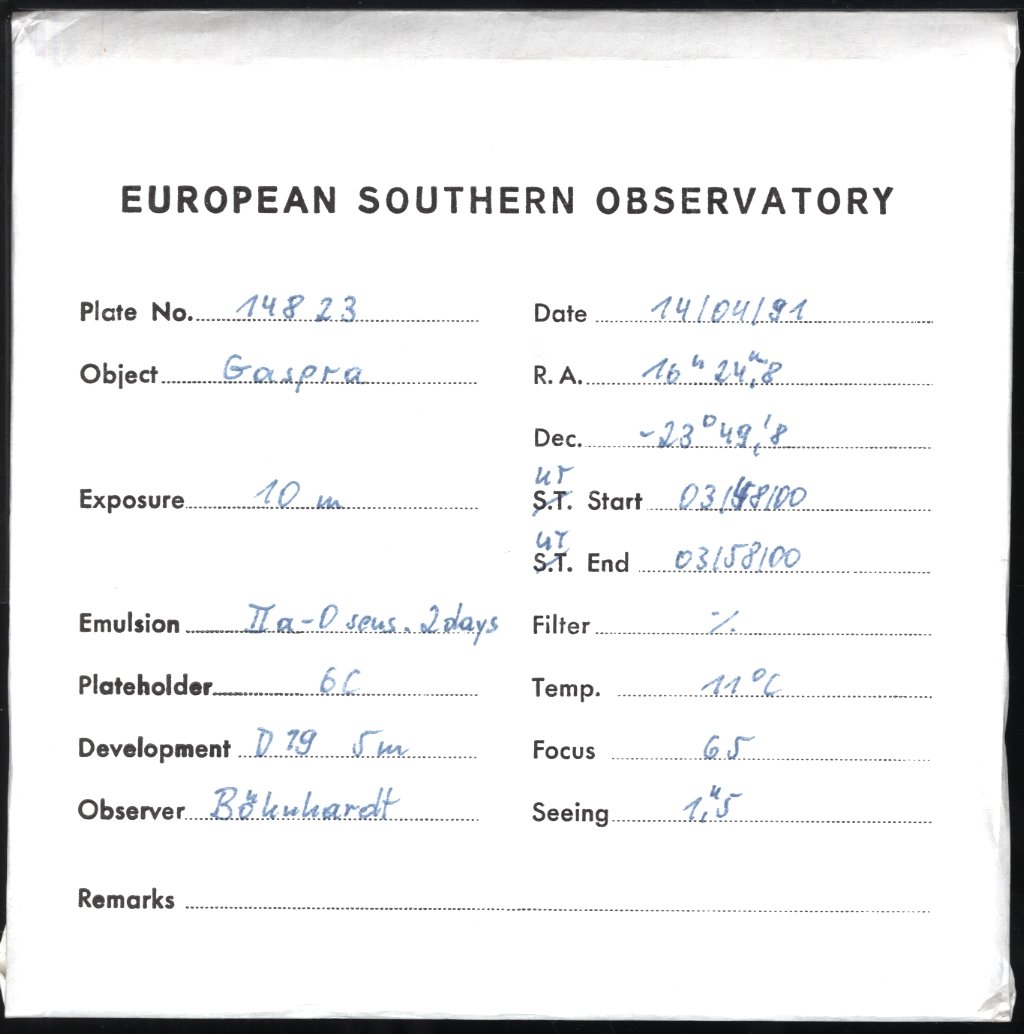 EUROPEAN SOUTHERN OBSERVATORY
Plate No. 14823 Date 14/04/91
Object Gaspra R.A. 16ʰ 24,ᵐ8
Dec. -23°49,'8
UT
Exposure 10 m S.T. Start 03/48/00
UT
S.T. End 03/58/00
Emulsion IIa-O sens. 2days Filter ٪
Plateholder 6C Temp. 11°C
Development D19 5m Focus 65
Observer Böhnhardt Seeing 1,"5
Remarks